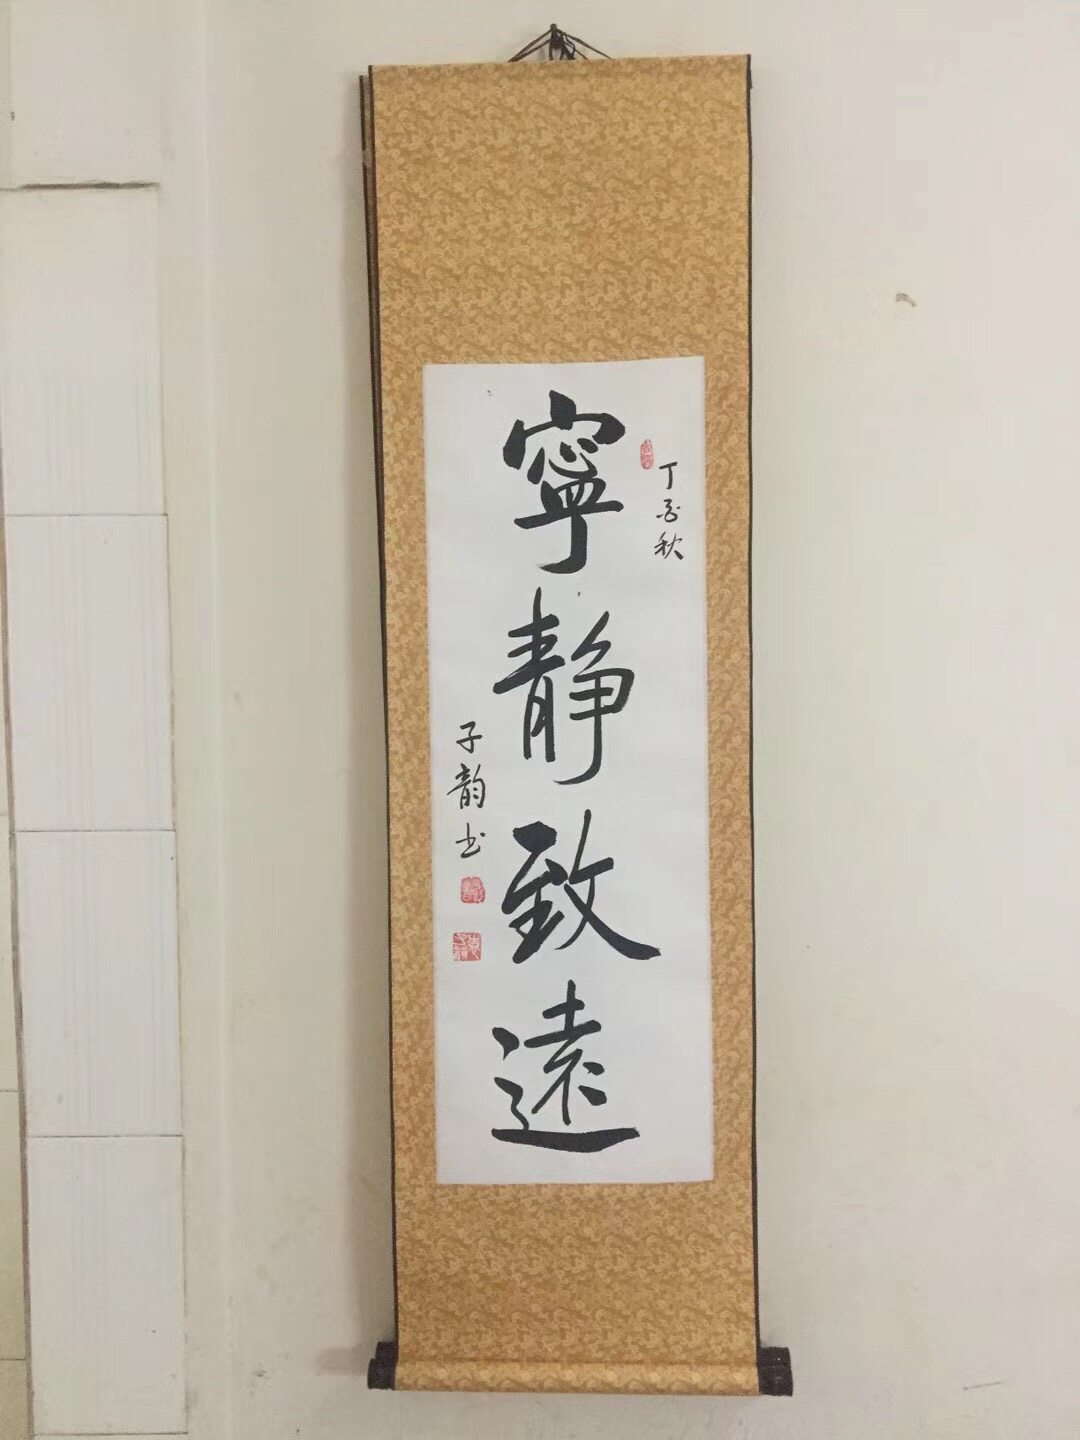 丁酉秋
寧靜致遠
子韵书